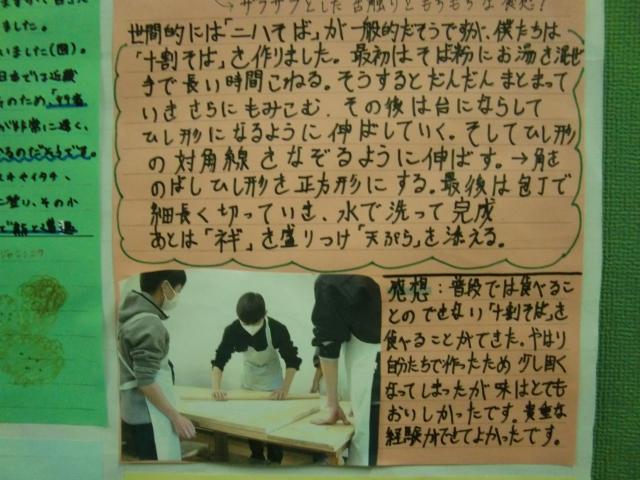 ました。
いました(図)。
日本では近畿
のため、
が非常に速く、
るのだそうです。
スキやイタチ、
に登り、その小
→ザラザラとした舌触りともちもちな
世間的には「二八そば」が一般的だそうですが、僕たちは
「十割そば」を作りました。最初はそば粉にお湯を混ぜ
手で長い時間こねる。そうするとだんだんまとまって
いき さらにもみこむ、その後は台にならして
ひし形になるように伸ばしていく。そしてひし形
の対角線をなぞるように伸ばす。→角を
のばしひし形を正方形にする。最後は包丁で
細長く切っていき、水で洗って完成
あとは「ネギ」を盛りつけ「天ぷら」を添える。
感想:普段では食べるこ
とのできない「十割そば」を
食べることができた。やはり
自分たちで作ったため少し固く
なってしまったが味はとても
おいしかったです。貴重な
経験ができてよかったです。